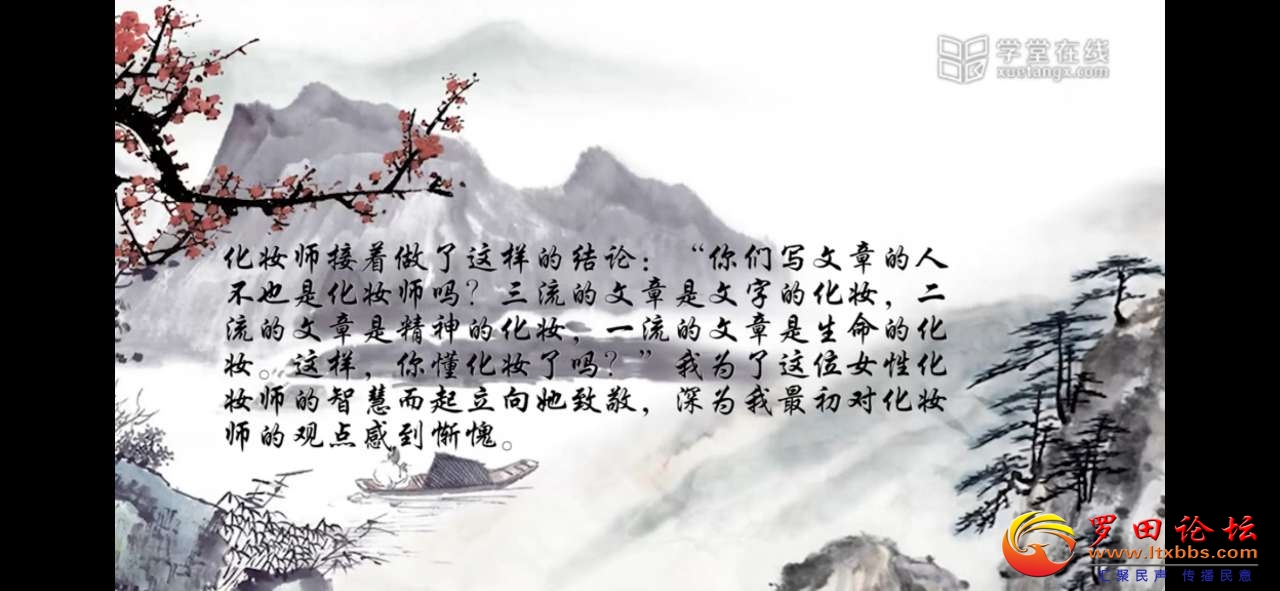 学堂在线
xuetangx.com
化妆师接着做了这样的结论：“你们写文章的人
不也是化妆师吗？三流的文章是文字的化妆，二
流的文章是精神的化妆，一流的文章是生命的化
妆。这样，你懂化妆了吗？”我为了这位女性化
妆师的智慧而起立向她致敬，深为我最初对化妆
师的观点感到惭愧。
罗田论坛
www.ltxbbs.com
汇聚民声 传播民意